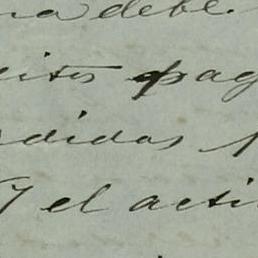 na debe.
eitos pag
didas p
y el acti